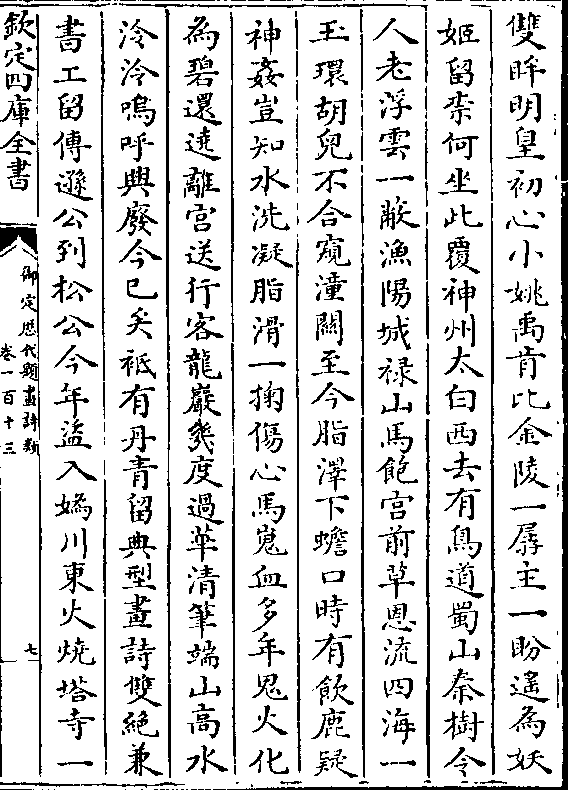 雙眸明皇初心小姚禹肯比金陵一孱主一盼遙為妖
姬留柰何坐此覆神州太白西去有鳥道蜀山秦樹令
人老浮雲一蔽漁陽城祿山馬飽宫前草恩流四海一
玉環胡兒不合窺潼關至今脂澤下蟾口時有飲鹿疑
神姦豈知水洗凝脂滑一掬傷心馬嵬血多年鬼火化
為碧還遶離宫送行客龍巖幾度過華清筆端山高水
泠泠嗚呼興廢今已矣祗有丹青留典型畫詩雙絶兼
書工留傳遜公到松公今年盜入嬀川東火燒塔寺一
欽定四庫全書
御定歴代題畫詩類
卷一百十三
七